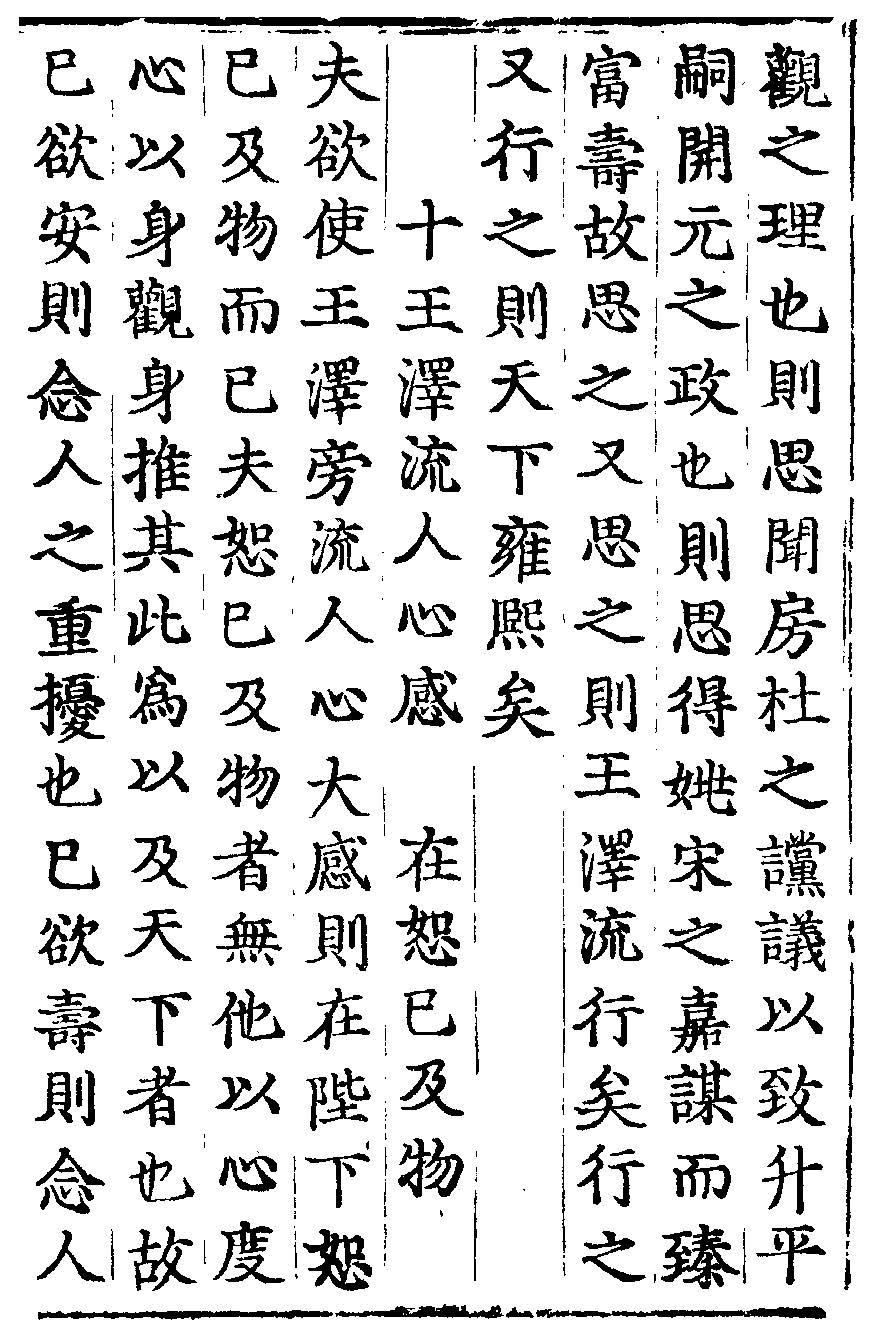 觀之理也則思聞房杜之讜議以致升平
嗣開元之政也則思得姚宋之嘉謀而臻
富壽故思之又思之則王澤流行矣行之
又行之則天下雍熙矣
十王澤流人心感　在恕已及物
夫欲使王澤旁流人心大感則在陛下恕
已及物而已夫恕已及物者無他以心度
心以身觀身推其此爲以及天下者也故
已欲安則念人之重擾也已欲壽則念人